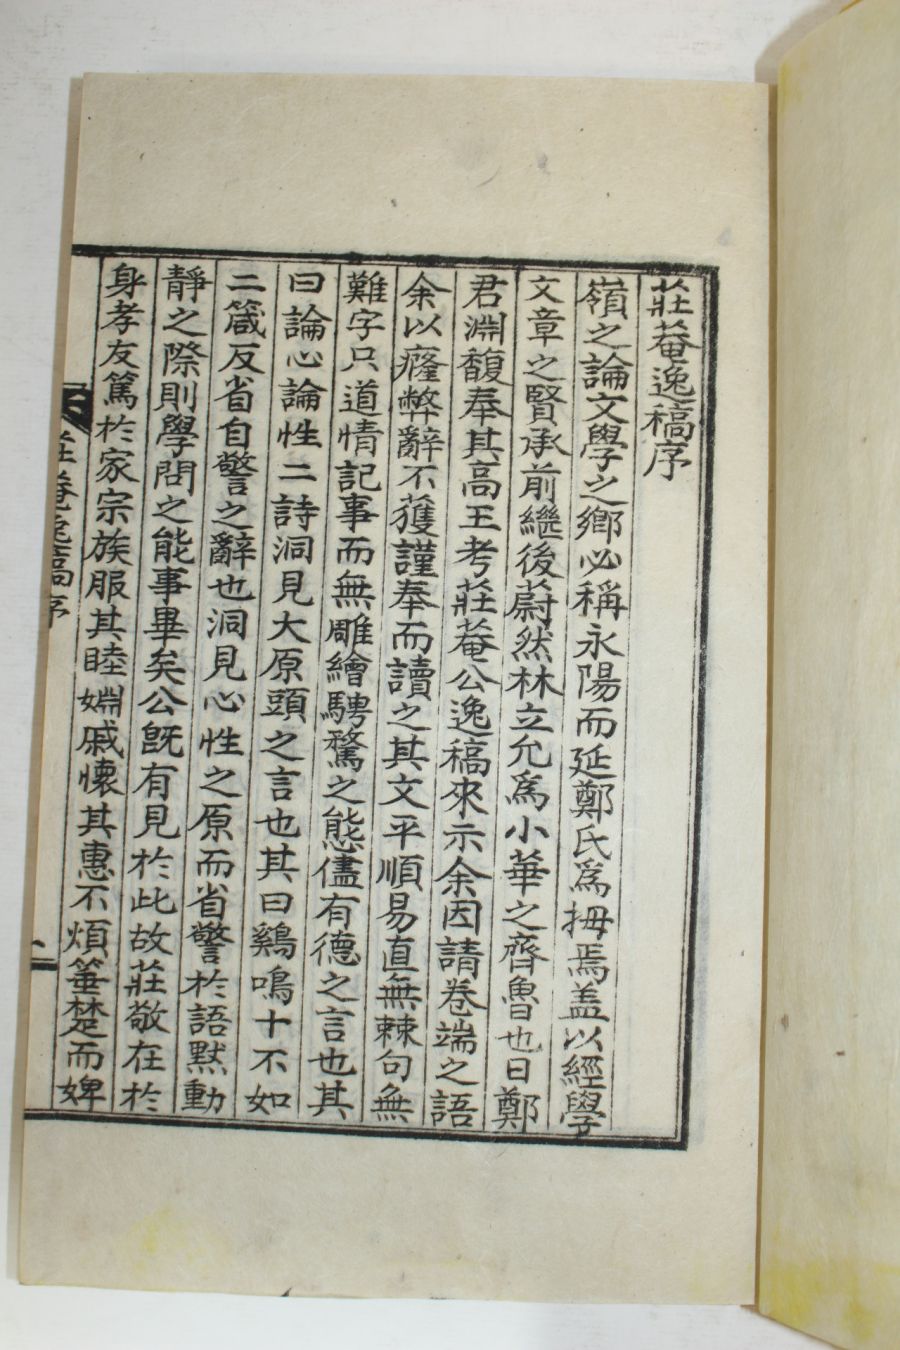 莊菴逸稿序
嶺之論文學之鄕必稱永陽而延鄭氏爲拇焉盖以經學
文章之賢承前繼後蔚然林立允爲小華之齊魯也日鄭
君淵馥奉其高王考莊菴公逸稿來示余因請卷端之語
余以癃弊辭不獲謹奉而讀之其文平順易直無棘句無
難字只道情記事而無雕繪騁騖之態儘有德之言也其
曰論心論性二詩洞見大原頭之言也其曰鷄鳴十不如
二箴反省自警之辭也洞見心性之原而省警於語默動
靜之際則學問之能事畢矣公旣有見於此故莊敬在於
身孝友篤於家宗族服其睦婣戚懷其惠不煩箠楚而婢
莊菴逸稿序
一